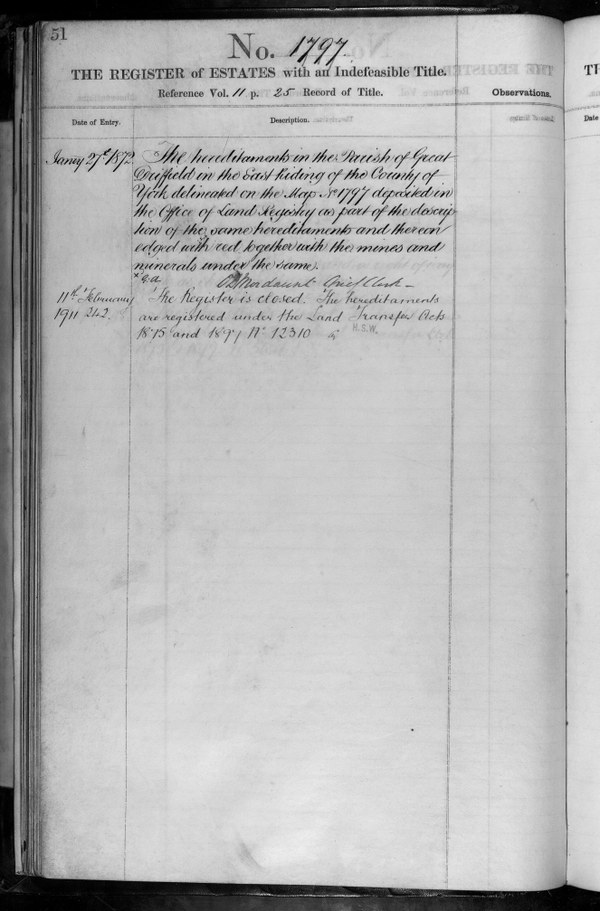 51
No. 1797
THE REGISTER of ESTATES with an Indefeasible Title.
Reference Vol. 11 p. 25 Record of Title.
Observations.
Date of Entry.
Description.
Jany 27th 1872
The hereditaments in the Parish of Great
Driffield in the East Riding of the County of
York delineated on the Map No 1797 deposited in
the Office of Land Registry as part of the descrip
tion of the same hereditaments and thereon
edged with red together with the mines and
minerals under the same.
Mordaunt Chief Clerk
11th February
1911 242.
The Register is closed. The hereditaments
are registered under the Land Transfer Acts
1875 and 1897 No 12310
H.S.W.
TH
Date